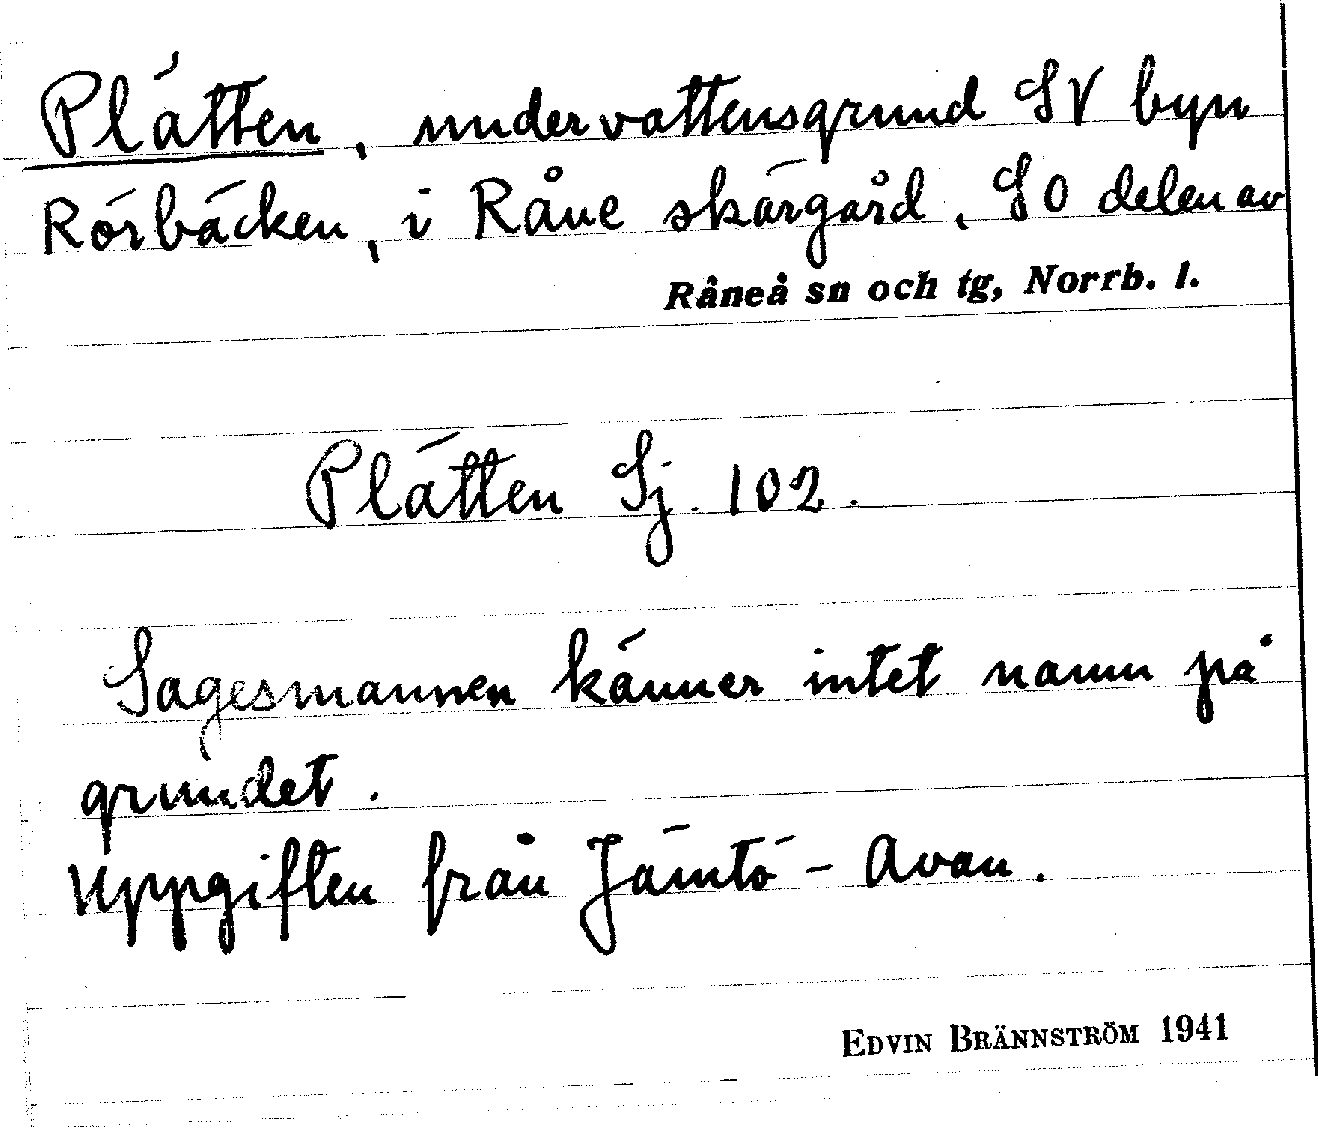 Plätten, undervattensgrund SV byn
Rörbäcken, i Råne skärgård, SO delen av
Råneå sn och tg, Norrb. l.
Plätten Sj. 102.
Sagesmannen känner intet namn på
grundet.
Uppgiften från Jämtö - Avan.
EDVIN BRÄNNSTRÖM 1941